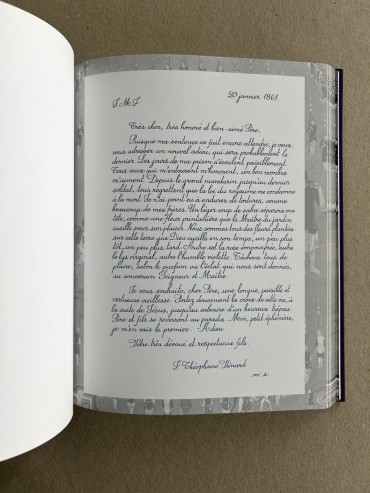 J.M.J.
20 janvier 1861
Très cher, très honoré et bien-aimé Père,
Puisque ma sentence se fait encore attendre, je veux
vous adresser un nouvel adieu, qui sera probablement le
dernier. Les jours de ma prison s'écoulent paisiblement.
Tous ceux qui m'entourent m'honorent, un bon nombre
m'aiment. Depuis le grand mandarin jusqu'au dernier
soldat, tous regrettent que la loi du royaume me condamne
à la mort. Je n'ai point eu à endurer de tortures, comme
beaucoup de mes frères. Un léger coup de sabre séparera ma
tête, comme une fleur printanière que le Maître du jardin
cueille pour son plaisir. Nous sommes tous des fleurs plantées
sur cette terre que Dieu cueille en son temps, un peu plus
tôt, un peu plus tard. Autre est la rose empourprée, autre
le lys virginal, autre l'humble violette. Tâchons tous de
plaire, selon le parfum ou l'éclat qui nous sont donnés,
au souverain Seigneur et Maître.
Je vous souhaite, cher Père, une longue, paisible et
vertueuse vieillesse. Portez doucement la croix de cette vie, à
la suite de Jésus, jusqu'au calvaire d'un heureux trépas.
Père et fils se reverront au paradis. Moi, petit éphémère,
je m'en vais le premier. Adieu.
Votre très dévoué et respectueux fils.
J. Théophane Vénard
m. s.